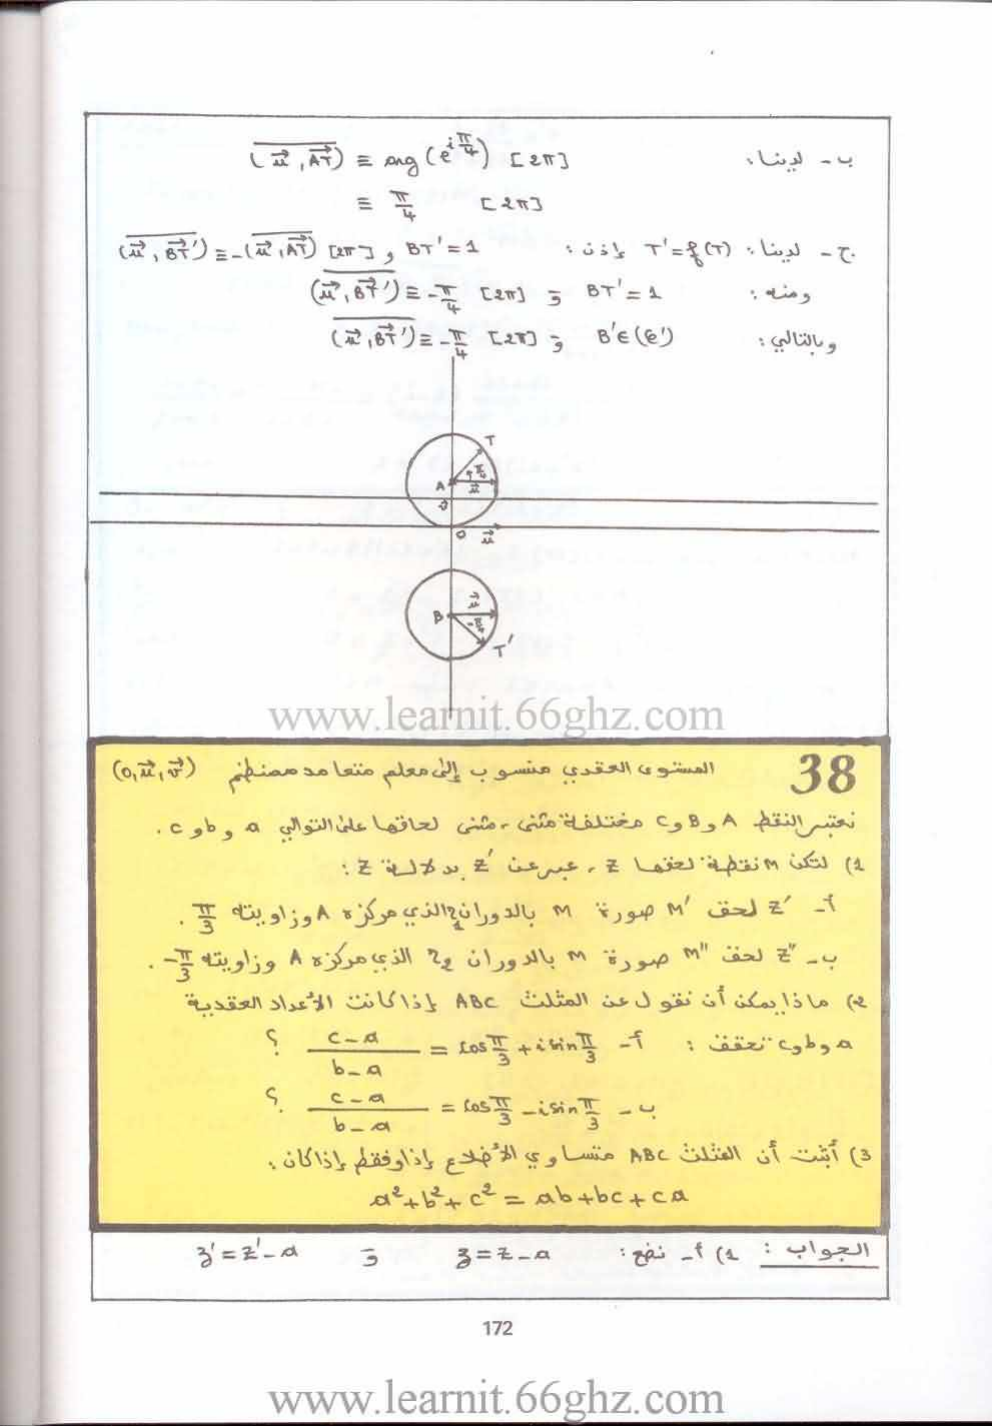 ب - لدينا: (u⃗, AT⃗) ≡ arg(e^{iπ/4}) [2π]
≡ π/4 [2π]
ج - لدينا: T'=f(T) إذن: BT'=1 و (u⃗, BT'⃗) ≡ -(u⃗, AT⃗) [2π]
ومنه: BT'=1 و (u⃗, BT'⃗) ≡ -π/4 [2π]
وبالتالي: B'∈(C') و (u⃗, BT'⃗) ≡ -π/4 [2π]
T
A
u⃗
O
u⃗
B
T'
www.learnit.66ghz.com
38 المستوى العقدي منسوب إلى معلم متعامد ممنظم (O, u⃗, v⃗)
نعتبر النقط A و B و C مختلفة مثنى، مثنى لحاقها على التوالي a و b و c.
1) لتكن M نقطة لحقها z، عبر عن z' بدلالة z:
أ- z' لحق M' صورة M بالدوران r₁ الذي مركزه A وزاويته π/3.
ب- z" لحق M" صورة M بالدوران r₂ الذي مركزه A وزاويته -π/3.
2) ماذا يمكن أن نقول عن المثلث ABC إذا كانت الأعداد العقدية
a و b و c تحقق: أ- (c-a)/(b-a) = cos π/3 + i sin π/3 ؟
ب- (c-a)/(b-a) = cos π/3 - i sin π/3 ؟
3) أثبت أن المثلث ABC متساوي الأضلاع إذا وفقط إذا كان:
a²+b²+c² = ab+bc+ca
الجواب: 1) أ- نضع: z=z-a و z'=z'-a
172
www.learnit.66ghz.com